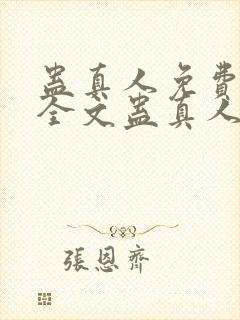 蛊真人免費
全文蛊真人
張恩齊